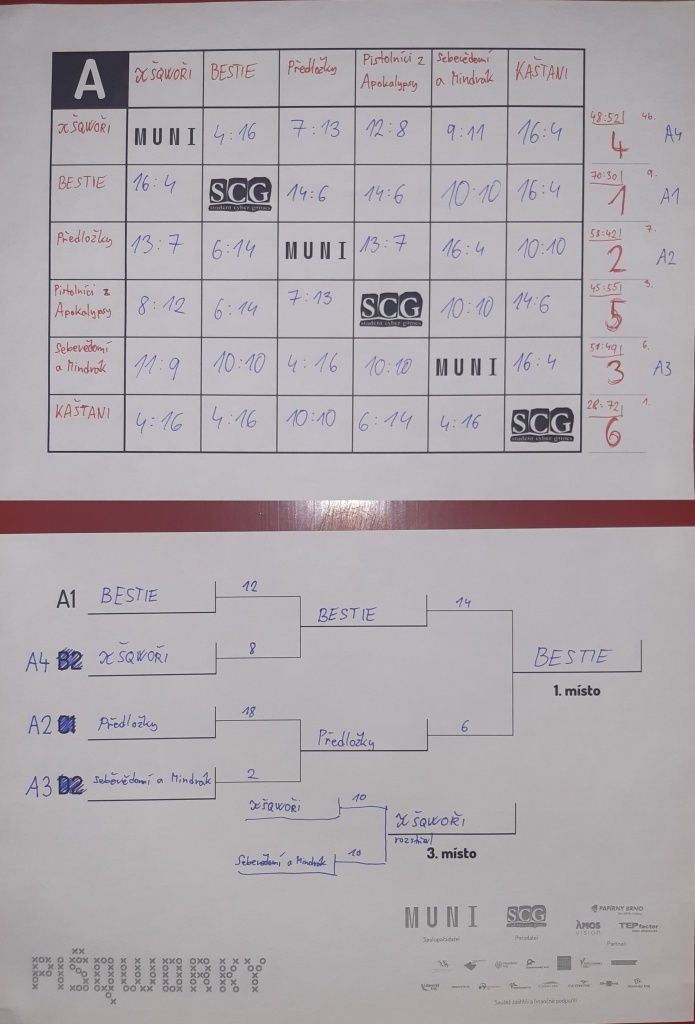 A XŠQWOŘI BESTIE Předložky Pistolníci z Apokalypsy Sebevědomí a Mindrák KAŠTANI
XŠQWOŘI MUNI 4:16 7:13 12:8 9:11 16:4 48:52 4b. 4 A4
BESTIE 16:4 SCG student cyber games 14:6 14:6 10:10 16:4 70:30 9. 1 A1
Předložky 13:7 6:14 MUNI 13:7 16:4 10:10 58:42 7. 2 A2
Pistolníci z Apokalypsy 8:12 6:14 7:13 SCG student cyber games 10:10 14:6 45:55 3. 5
Sebevědomí a Mindrák 11:9 10:10 4:16 10:10 MUNI 16:4 51:49 6. 3 A3
KAŠTANI 4:16 4:16 10:10 6:14 4:16 SCG student cyber games 28:72 1. 6
A1 BESTIE 12
BESTIE 14
A4 B2 XŠQWOŘI 8
BESTIE
1. místo
A2 C1 Předložky 18
Předložky 6
A3 D2 Sebevědomí a Mindrák 2
XŠQWOŘI 10
XŠQWOŘI
rozstřel
3. místo
Sebevědomí a Mindrák 10
MUNI SCG PAPÍRNY BRNO
AMOS vision TEP factor
Spolupořadatel Pořadatel Partneři
PIŠQWORKY
Soutěž zaštítili a finančně podpořili